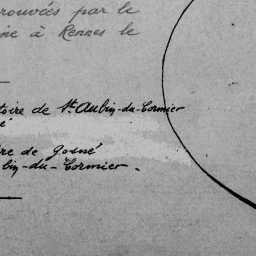 rouvées par le
ine à Rennes le
toire de St. Aubin-du-Cormier
é
re de Gosné
bin-du-Cormier.